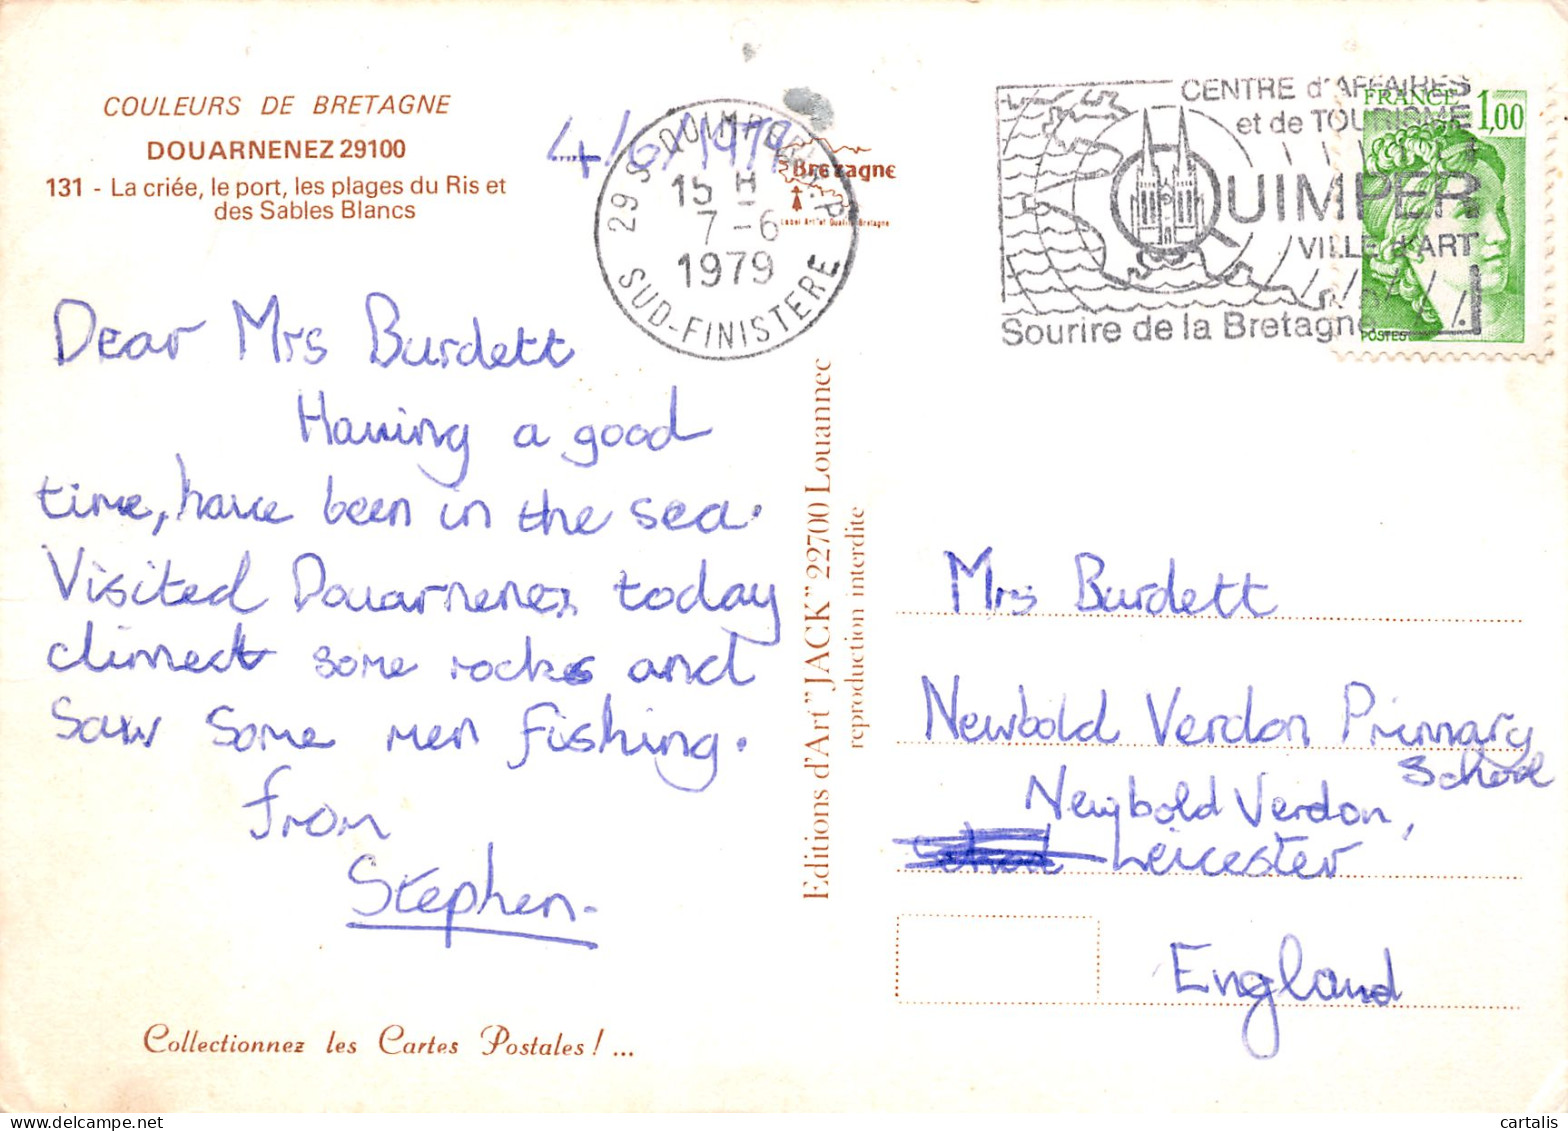 COULEURS DE BRETAGNE
DOUARNENEZ 29100
131 - La criée, le port, les plages du Ris et
des Sables Blancs
4/6/1979
15 H
7-6
1979
SUD-FINISTERE
Bretagne
Label Art et Qualité Bretagne
CENTRE d'AFFAIRES
et de TOURISME
QUIMPER
VILLE d'ART
Sourire de la Bretagne
FRANCE 1,00
POSTES
Dear Mrs Burdett
Having a good
time, have been in the sea.
Visited Douarnenez today
climed some rocks and
saw some men fishing.
from
Stephen.
Collectionnez les Cartes Postales ! ...
Editions d'Art "JACK" 22700 Louannec
reproduction interdite
Mrs Burdett
Newbold Verdon Primary
School
Newbold Verdon,
Leicester
England
cartalis